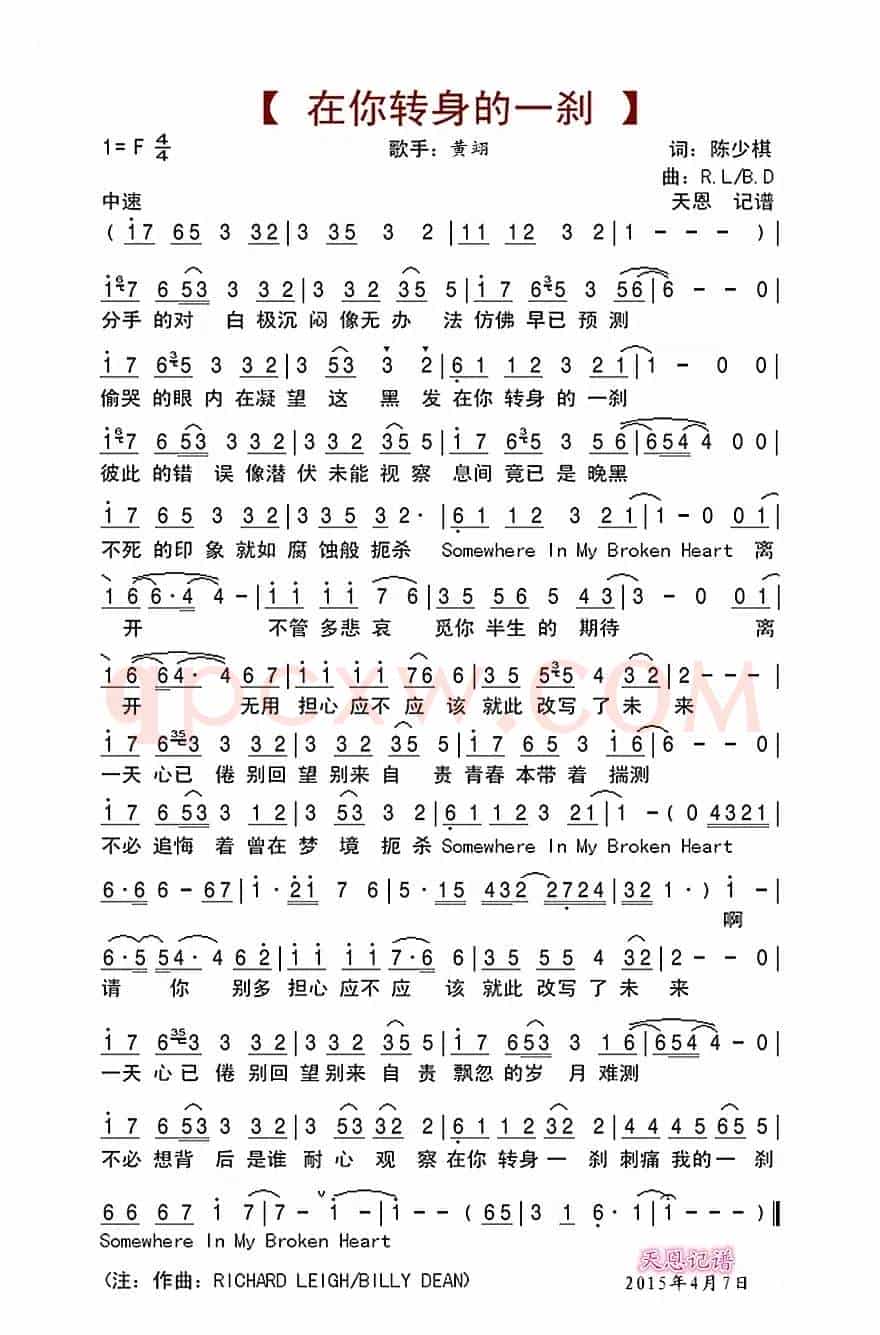 【 在你转身的一刹 】
1= F 4/4 歌手：黄翊 词：陈少棋
曲：R.L/B.D
中速 天恩 记谱
( i7 65 3 32 | 3 35 3 2 | 11 12 3 2 | 1 - - - ) |
i7 6 53 3 32 | 3 32 35 5 | i7 65 3 56 | 6 - - 0 |
分手 的对 白 极沉 闷 像无 办 法 仿佛 早已 预 测
i7 65 3 32 | 3 53 3 2 | 61 12 3 21 | 1 - 0 0 |
偷哭 的眼 内 在凝 望 这 黑 发 在你 转身 的 一刹
i7 6 53 3 32 | 3 32 35 5 | i7 65 3 56 | 654 4 0 0 |
彼此 的错 误 像潜 伏 未能 视 察 息间 竟已 是 晚黑
i7 65 3 32 | 33 5 32· | 61 12 3 21 | 1 - 0 01 |
不死 的印 象 就如 腐 蚀般 扼杀 Somewhere In My Broken Heart 离
16 6·4 4 - | ii ii 7 6 | 35 56 5 43 | 3 - 0 01 |
开 不管 多悲 哀 觅你 半生 的 期待 离
16 64· 4 67 | ii ii 76 6 | 35 55 4 32 | 2 - - 0 |
开 无用 担心 应不 应 该 就此 改写 了 未 来
i7 63 3 32 | 3 32 35 5 | i7 65 3 i6 | 6 - - 0 |
一天 心已 倦 别回 望 别来 自 责 青春 本带 着 揣测
i7 6 53 3 12 | 3 53 3 2 | 61 12 3 21 | 1 - ( 0 4321 |
不必 追悔 着 曾在 梦 境 扼 杀 Somewhere In My Broken Heart
6·6 6 - 67 | i· 2i 7 6 | 5· 15 432 2724 | 32 1· ) i - |
啊
6·5 54· 4 62 | ii ii 7·6 6 | 35 55 4 32 | 2 - - 0 |
请 你 别多 担心 应不 应 该 就此 改写 了 未 来
i7 63 3 32 | 3 32 35 5 | i7 653 3 16 | 654 4 - 0 |
一天 心已 倦 别回 望 别来 自 责 飘忽 的岁 月 难测
i7 6 53 3 32 | 3 53 32 2 | 61 12 32 2 | 44 45 65 5 |
不必 想背 后 是谁 耐 心 观 察 在你 转身 一 刹 刺痛 我的 一 刹
66 67 i 7 | 7 - i - | i - - ( 65 | 3 1 6· i | i - - ) ‖
Somewhere In My Broken Heart
(注：作曲：RICHARD LEIGH/BILLY DEAN)
天恩记谱
2015年4月7日
qpcxw.COM